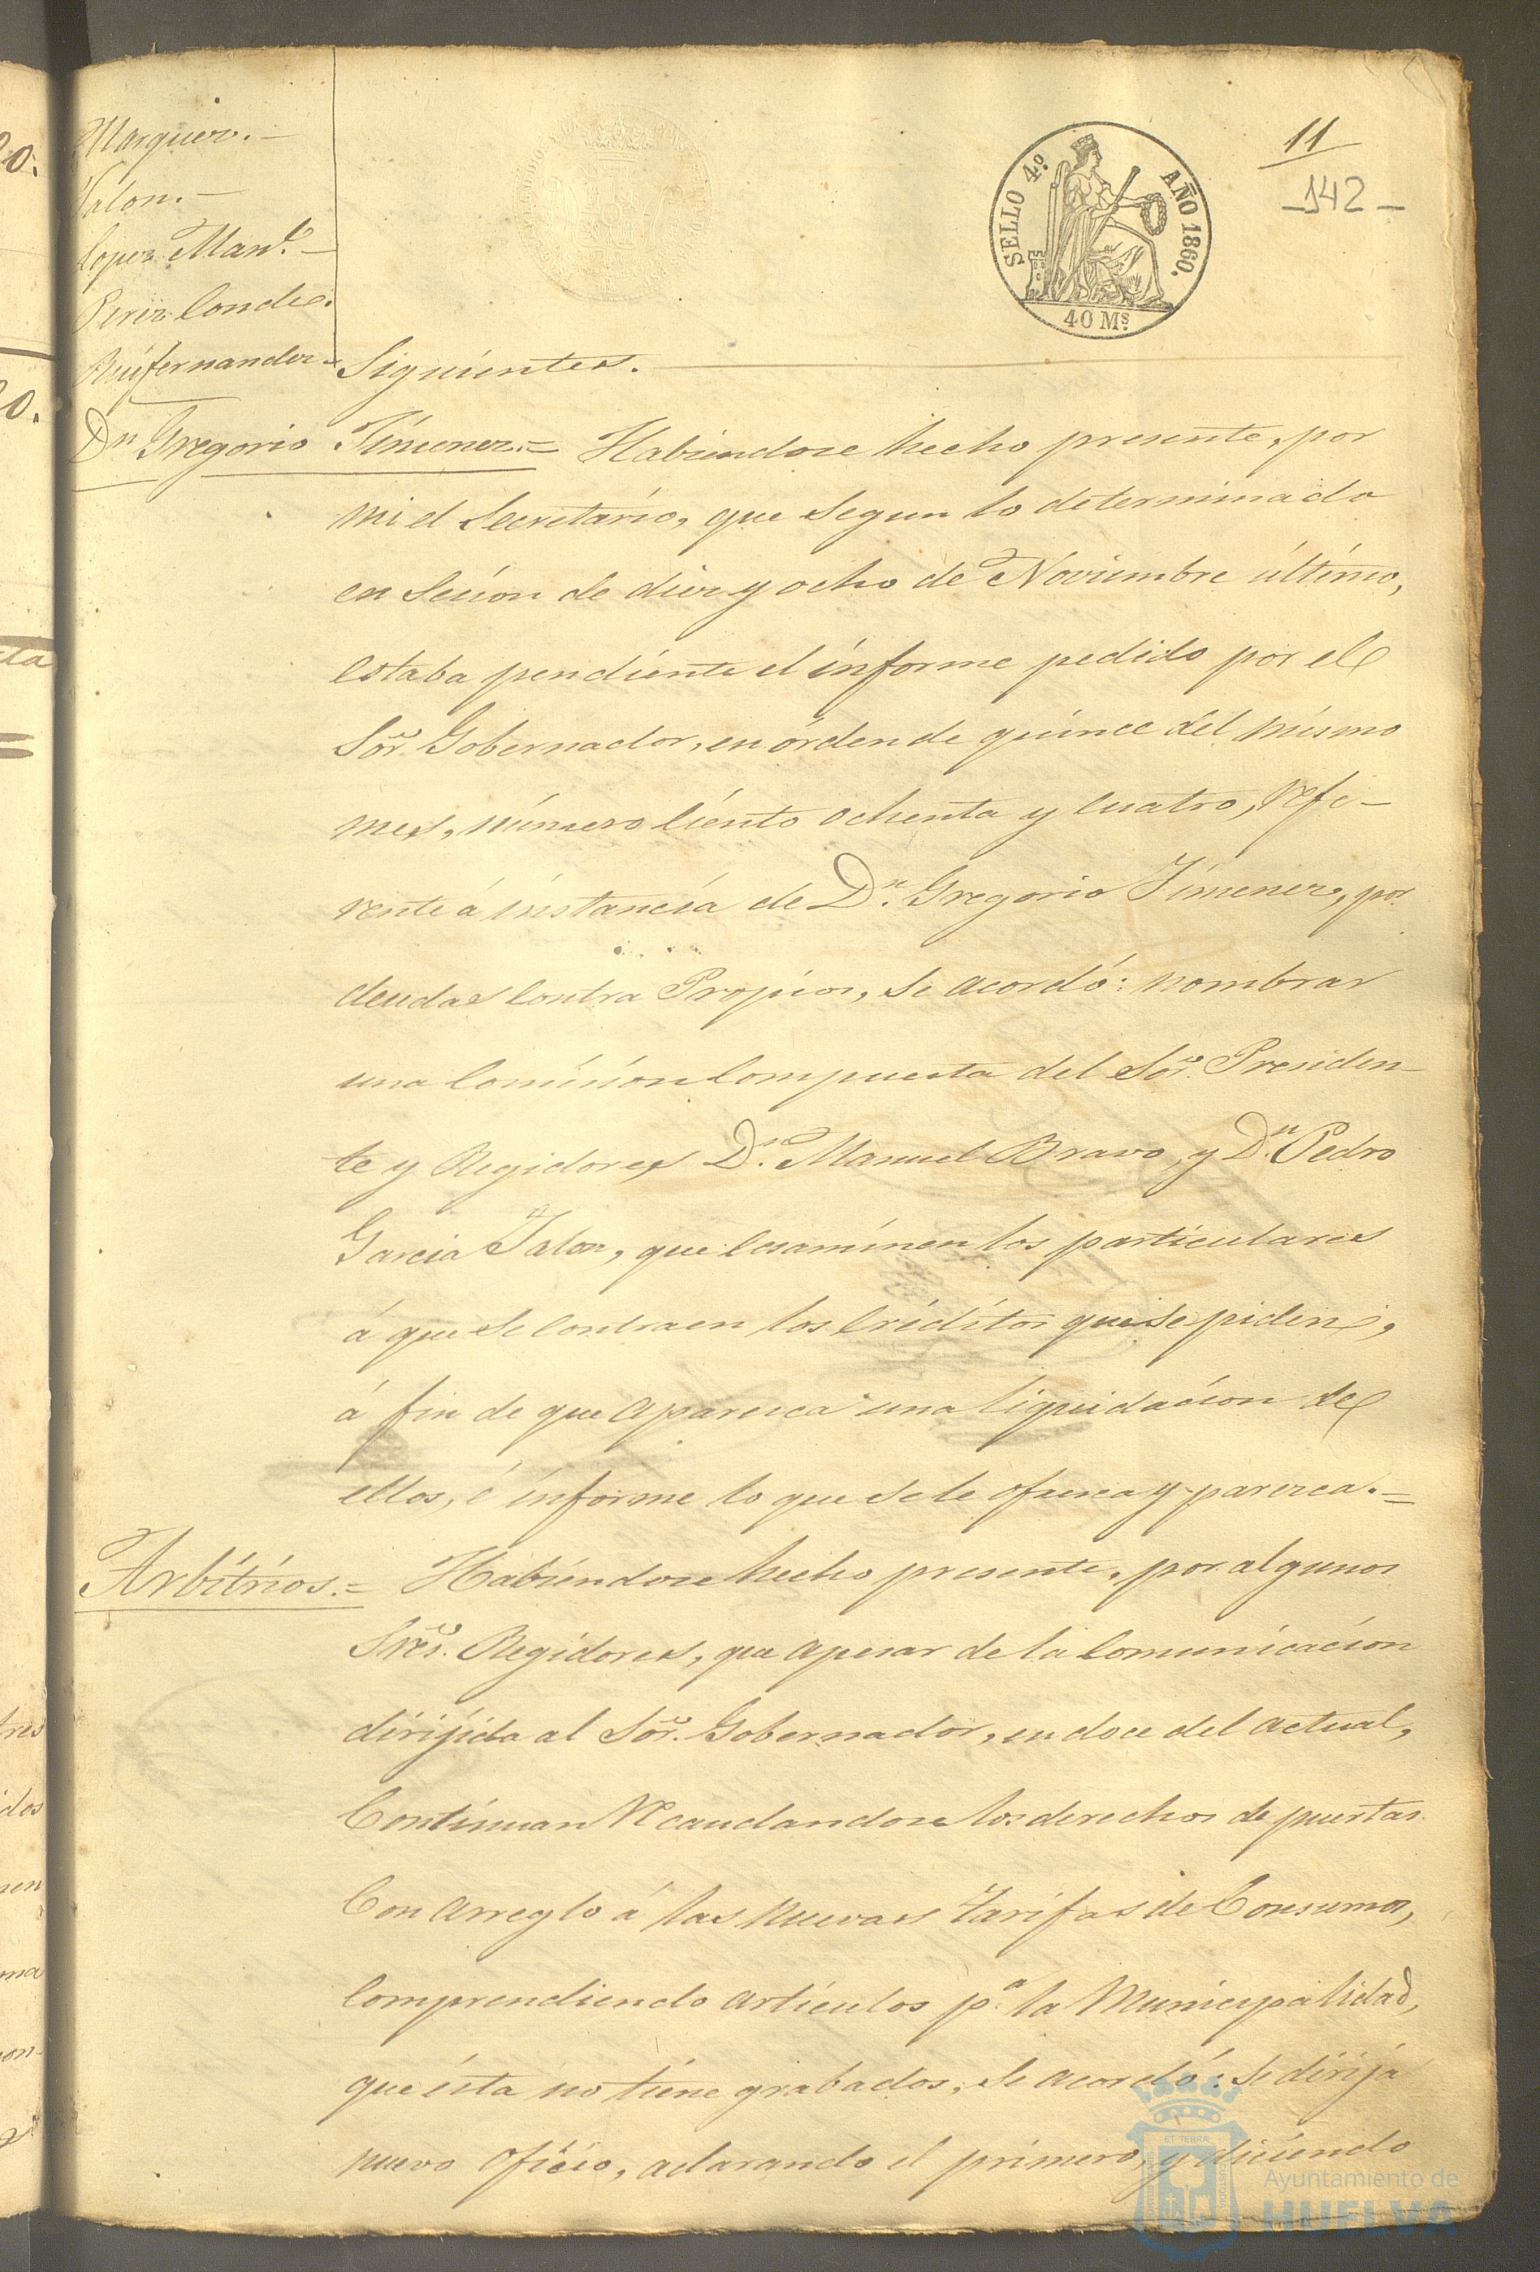 Marquez.-
Jalon.-
Lopez Man.l-
Perez Conde.
Ruifernandez-
SELLO 4º. AÑO 1860.
40 Ms.
11
-142-
Siguientes.
Dn Gregorio Jimenez.= Habiendose hecho presente, por
mi el Secretario, que segun lo determinado
en sesion de diez y ocho de Noviembre último,
estaba pendiente el informe pedido por el
Sor. Gobernador, en órden de quince del mismo
mes, número ciento ochenta y cuatro, refe-
rente á instancia de Dn. Gregorio Jimenez, por
deudas contra Propios, se acordó: nombrar
una Comision compuesta del Sor. Presiden-
te y Regidores Dn. Manuel Bravo, y Dn. Pedro
Garcia Jalon, que ecsaminen los particulares
á que se contraen los créditos que se piden,
á fin de que aparezca una liquidacion de
ellos, é informe lo que se le ofrezca y parezca.=
Arbitrios.= Habiendose hecho presente, por algunos
Sres. Regidores, que apesar de la comunicacion
dirijida al Sor. Gobernador, en doce del actual,
Continuan recaudandose los derechos de puertas
Con arreglo á las nuevas tarifas de Consumos,
comprendiendo articulos pa. la Municipalidad,
que ésta no tiene grabados, se acordó: se dirija
nuevo oficio, aclarando el primero, y diciendo
Ayuntamiento de
HUELVA